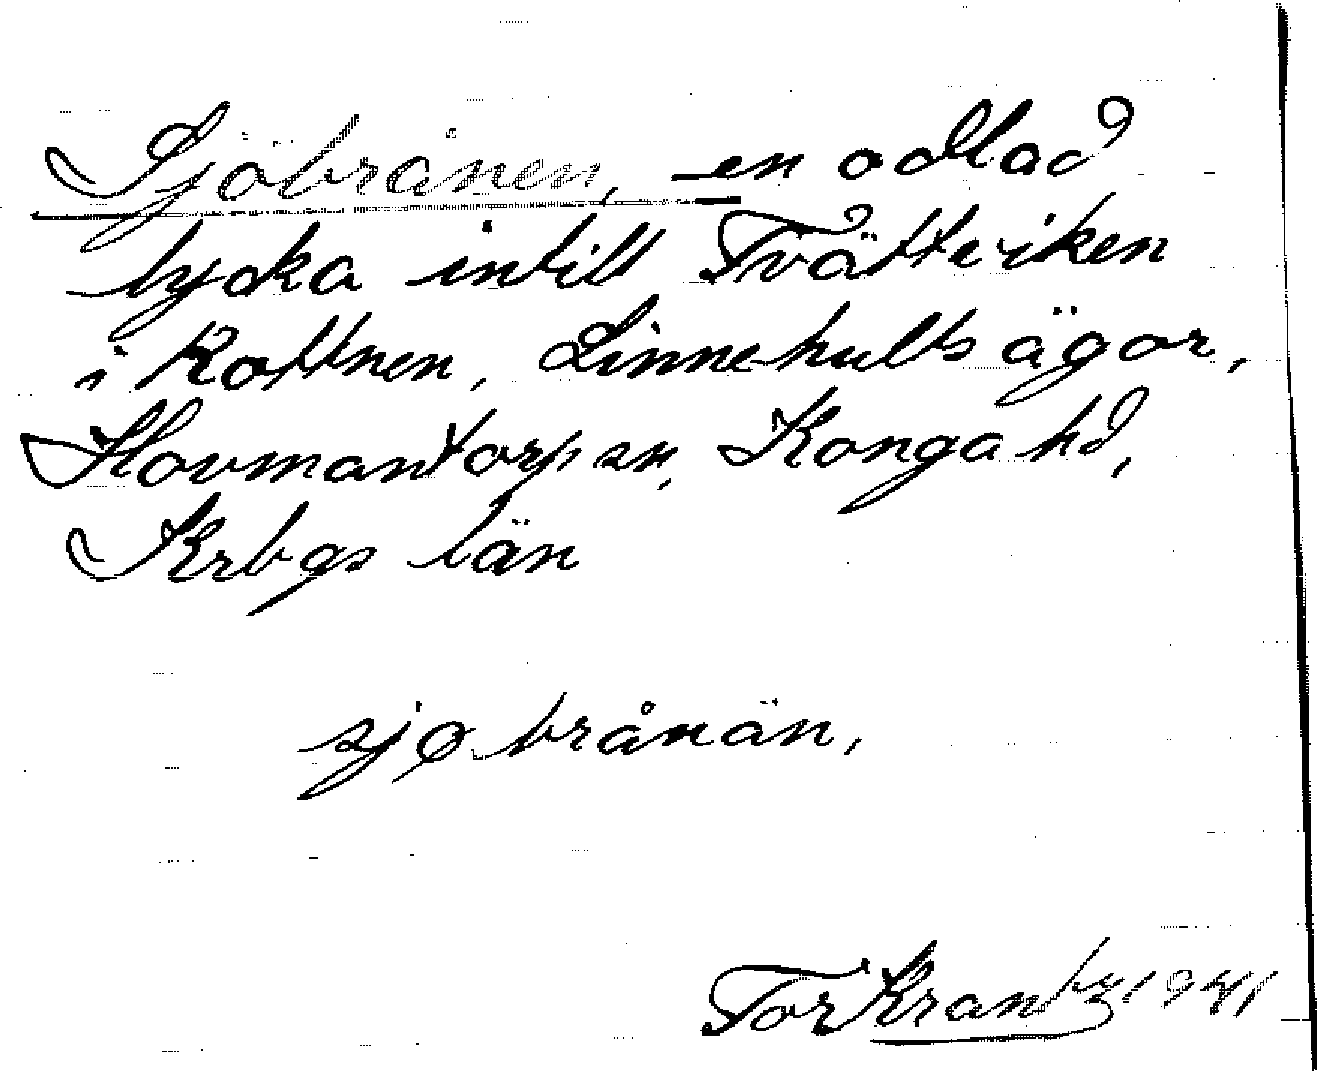 Sjöbrånen, en odlad
lycka intill Tvättviken
i Rottnen, Linnehults ägor,
Hovmantorps sn, Konga hd,
Krbgs län
sjøbrånän,
Tor Krantz 1941